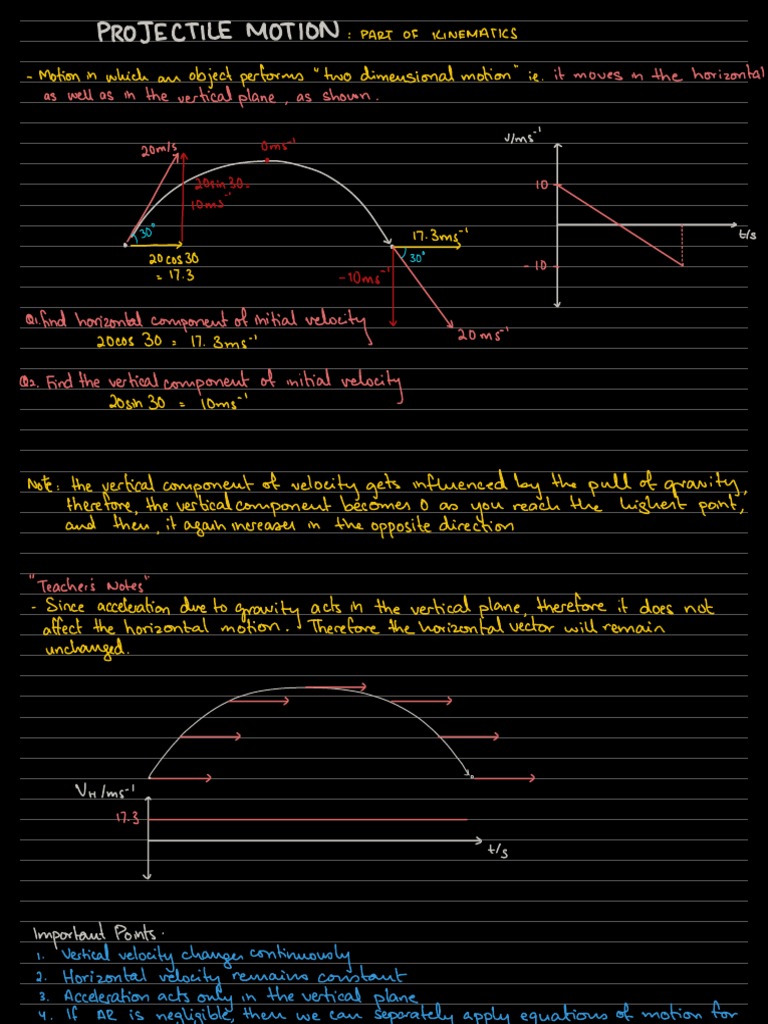 PROJECTILE MOTION : PART OF KINEMATICS
- Motion in which an object performs "two dimensional motion" i.e. it moves in the horizontal
as well as in the vertical plane, as shown.
20m/s
0ms⁻¹
V/ms⁻¹
20sin30=
10ms⁻¹
10
30°
17.3ms⁻¹
t/s
20cos30
= 17.3
30°
-10ms⁻¹
-10
Q1. find horizontal component of initial velocity
20ms⁻¹
20cos 30 = 17.3ms⁻¹
Q2. Find the vertical component of initial velocity
20sin 30 = 10ms⁻¹
Note: the vertical component of velocity gets influenced by the pull of gravity,
therefore, the vertical component becomes 0 as you reach the highest point,
and then, it again increases in the opposite direction
"Teacher's Notes"
- Since acceleration due to gravity acts in the vertical plane, therefore it does not
affect the horizontal motion. Therefore the horizontal vector will remain
unchanged.
VH/ms⁻¹
17.3
t/s
Important Points.
1. Vertical velocity changes continuously
2. Horizontal velocity remains constant
3. Acceleration acts only in the vertical plane
4. If AR is negligible, then we can separately apply equations of motion for